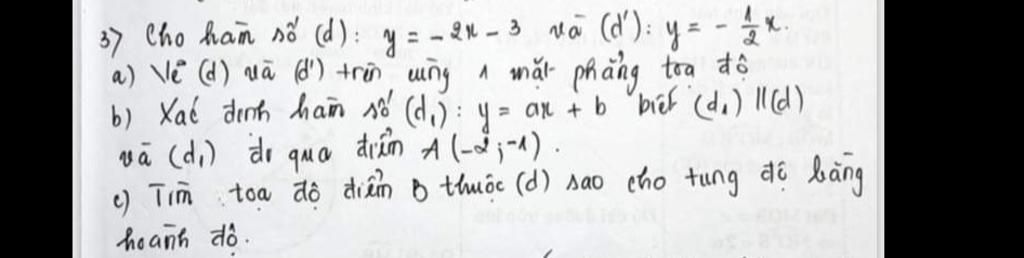 3) Cho hàm số (d): y = -2x - 3 và (d'): y = - 1/2 x.
a) Vẽ (d) và (d') trên cùng 1 mặt phẳng tọa độ
b) Xác định hàm số (d₁): y = ax + b biết (d₁) // (d)
và (d₁) đi qua điểm A (-2; -1).
c) Tìm tọa độ điểm B thuộc (d) sao cho tung độ bằng
hoành độ.